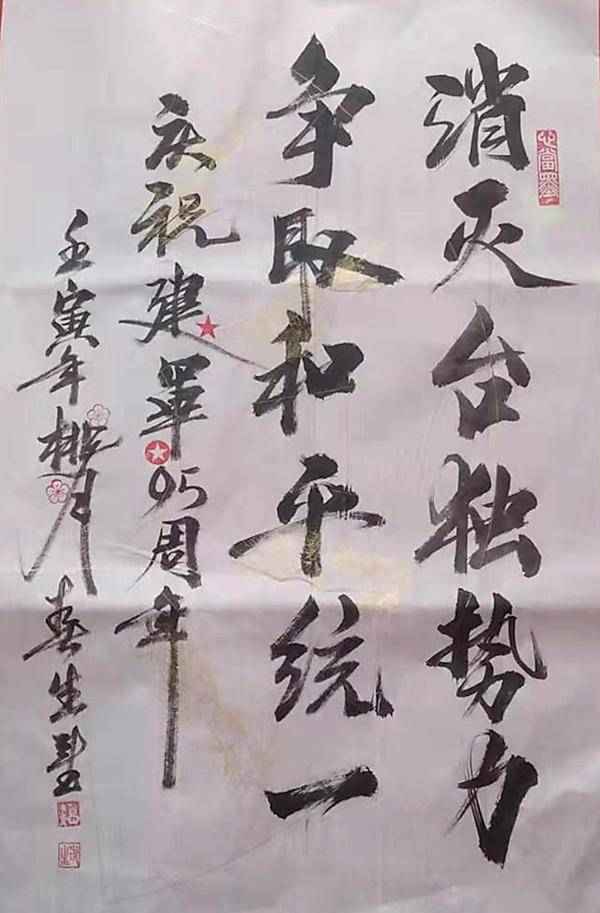 消灭台独势力
争取和平统一
庆祝建军95周年
壬寅年桃月 春生墨